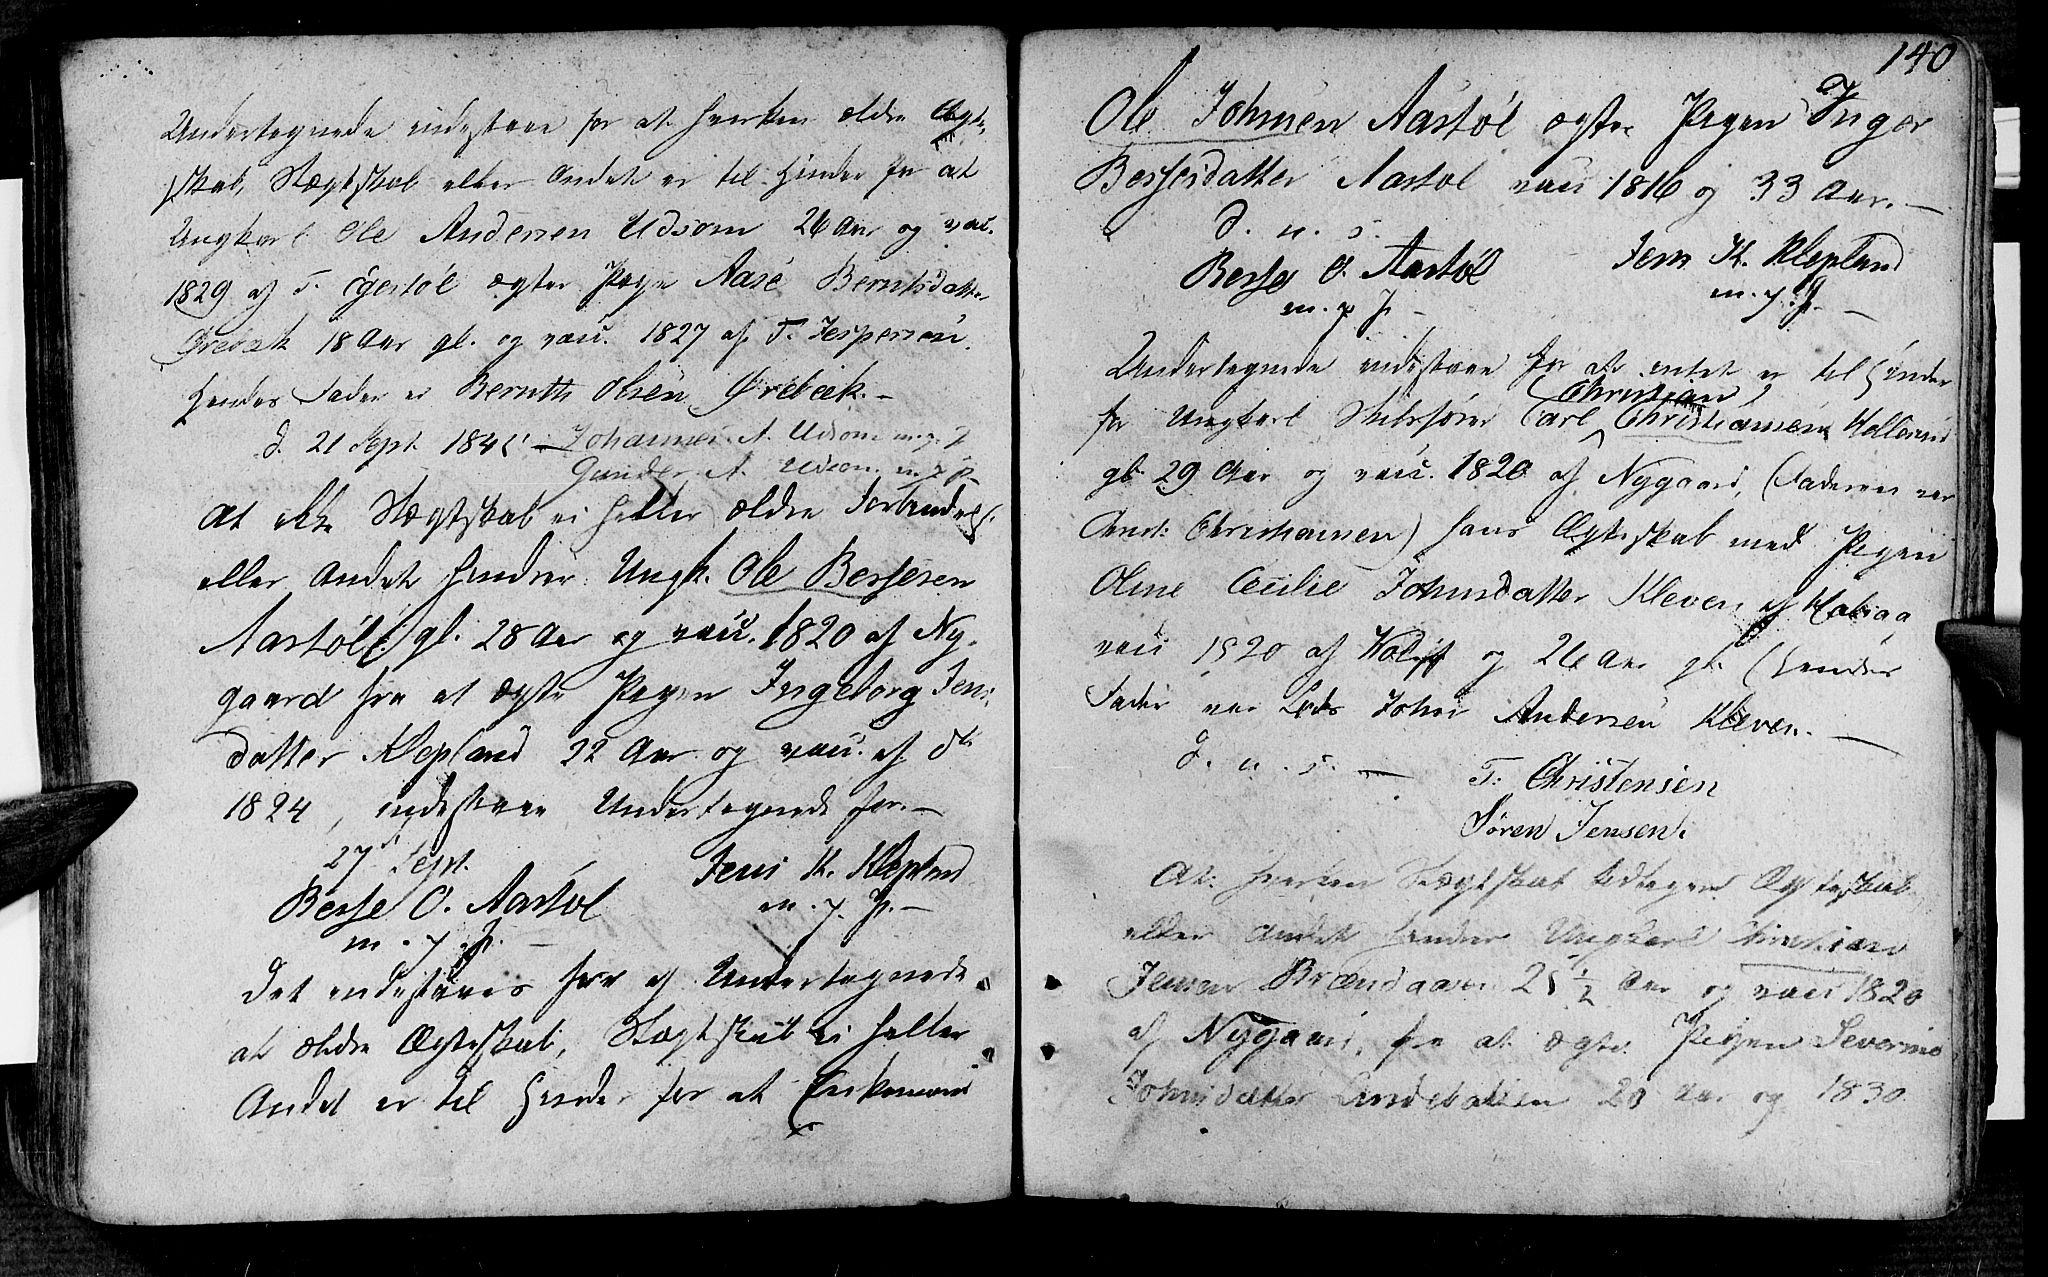 Undertegnede indestaae for at hverken ældre Ægte-
skab, Slægtskab eller Andet er til Hinder for at
Ungkarl Ole Andersen Udsom 26 Aar og vac.
1829 af T. Egestøl ægter Pige Aase Berntsdatter
Ørebek 18 Aar gl. og vacc. 1827 af T. Jespersen.
Hendes Fader er Bernth Olsen Ørebeck. –
d. 21 Sept. 1845 – Johannes A. Udsom m. p. P
Gunder A. Udsom m. p. P
At ikke Slægtskab ei heller ældre Forbindelse
eller Andet hindrer Ungk. Ole Berjesen
Aastøl gl. 28 Aar og vacc. 1820 af Ny-
gaard fra at ægte Pigen Ingeborg Jens-
datter Klepland 22 Aar og vacc. af do
1824, indestaae Undertegnede for. –
27 Sept.
Berje O. Aastøl Jens K. Klepland
m. p. P. – m. p. P. –
Det indestaaes for af Undertegnede
at ældre Ægteskab, Slægtskab ei heller
Andet er til Hinder for at Enkemand
140
Ole Johnsen Aastøl ægter Pigen Inger
Berjesdatter Aastøl vacc 1816 og 33 Aar. –
d. u. s.
Berje O. Aastøl Jens K. Klepland
m. p. P. – m. p. P. –
Undertegnede indestaae for at intet er til Hinder
Christian
for Ungkarl Carl Christiansen
gl. 29 Aar og vacc. 1820 af Nygaard, (Faderen var
Christiansen) hans Ægteskab med Pigen
Oline Cecilie Johnsdatter Kleven af
vacc 1820 af og 26 Aar gl. (Hendes
Fader var Lods John Andersen Kleven. –
d. u. s. – T. Christensen
Søren Jensen.
At hverken Slægtskab tidligere Ægteskab,
eller Andet hindrer Ungkarl Christian
Jensen 25 1/2 Aar og vacc 1820
af Nygaard, fra at ægte Pigen Severine
Johnsdatter 20 Aar og 1830